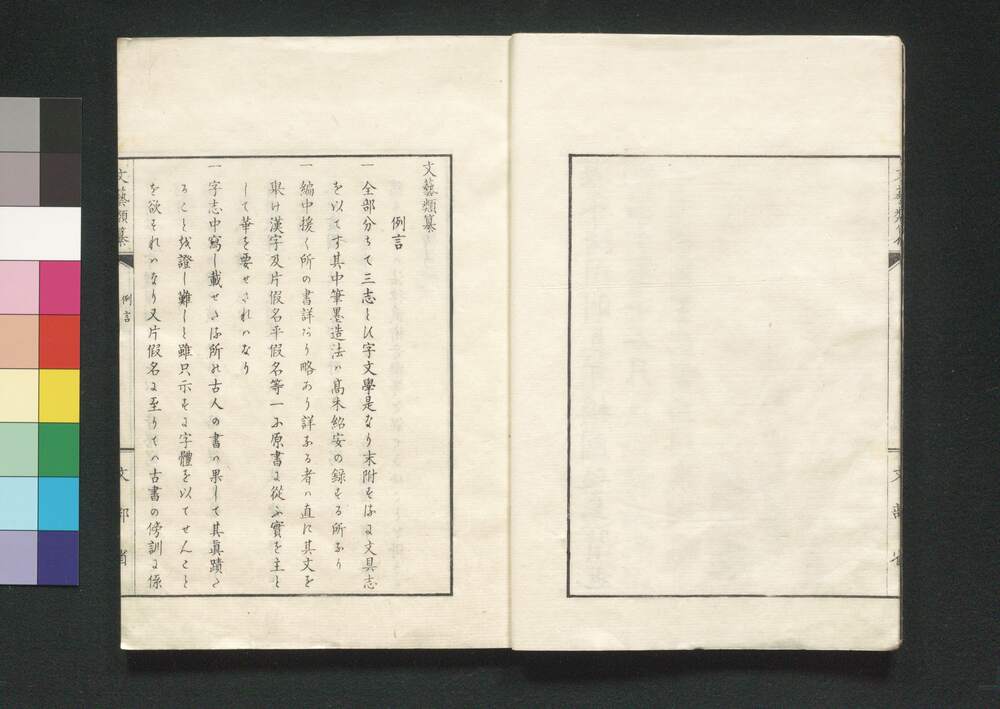 文藝類纂
文部省
文藝類纂
例言
一全部分ちて三志とひ字文學是なり末附するは文具志
を以てす其中筆墨造法ハ高木紹安の錄する所なり
一編中援く所の書詳なり略あり詳なる者ハ直に其文を
聚け漢字及片假名平假名等一に原書に從ふ實を主と
して華を要せされハなり
一字志中寫し載せたる所の古人の書ハ果して其眞蹟た
ることを證し難しと雖只示すに字體を以てせんこと
を欲すれハなり又片假名に至りてハ古書の傍訓に係
文藝類纂
例言
文部省